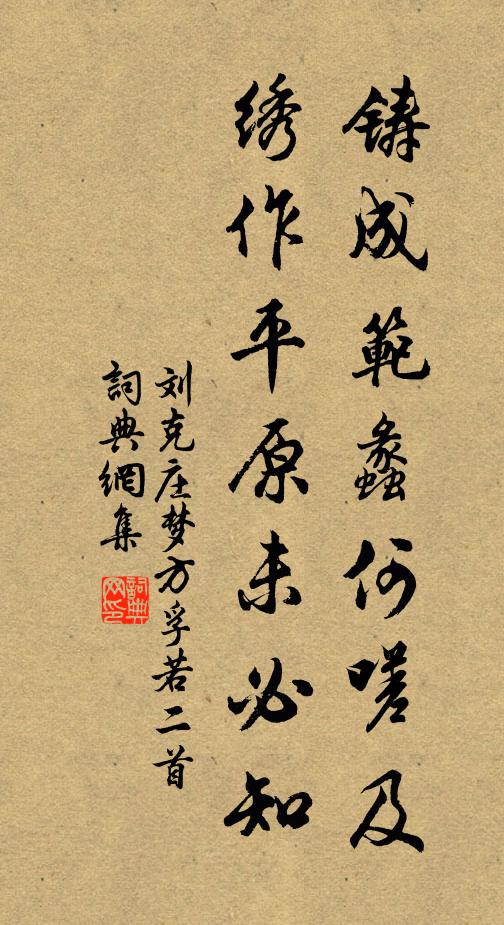 铸成範蠡何嗟及
绣作平原未必知
刘克庄梦方孚若二首
詞典網集
詞典网印